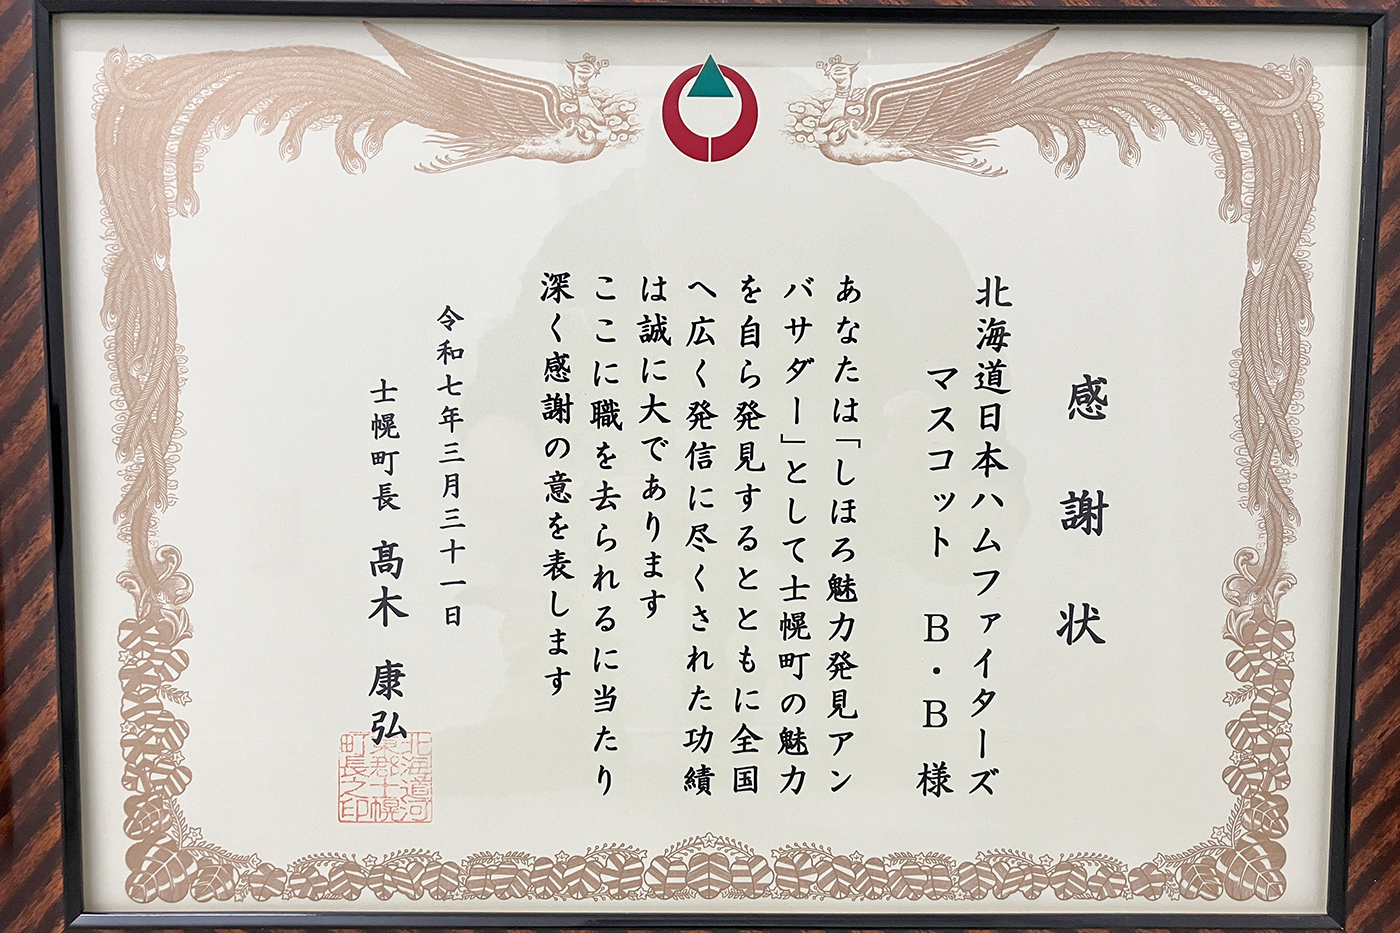 感謝状
北海道日本ハムファイターズ
マスコット B・B 様
あなたは「しほろ魅力発見アン
バサダー」として士幌町の魅力
を自ら発見するとともに全国
へ広く発信に尽くされた功績
は誠に大であります
ここに職を去られるに当たり
深く感謝の意を表します
令和七年三月三十一日
士幌町長 髙木 康弘
北海道河
東郡士幌
町長之印